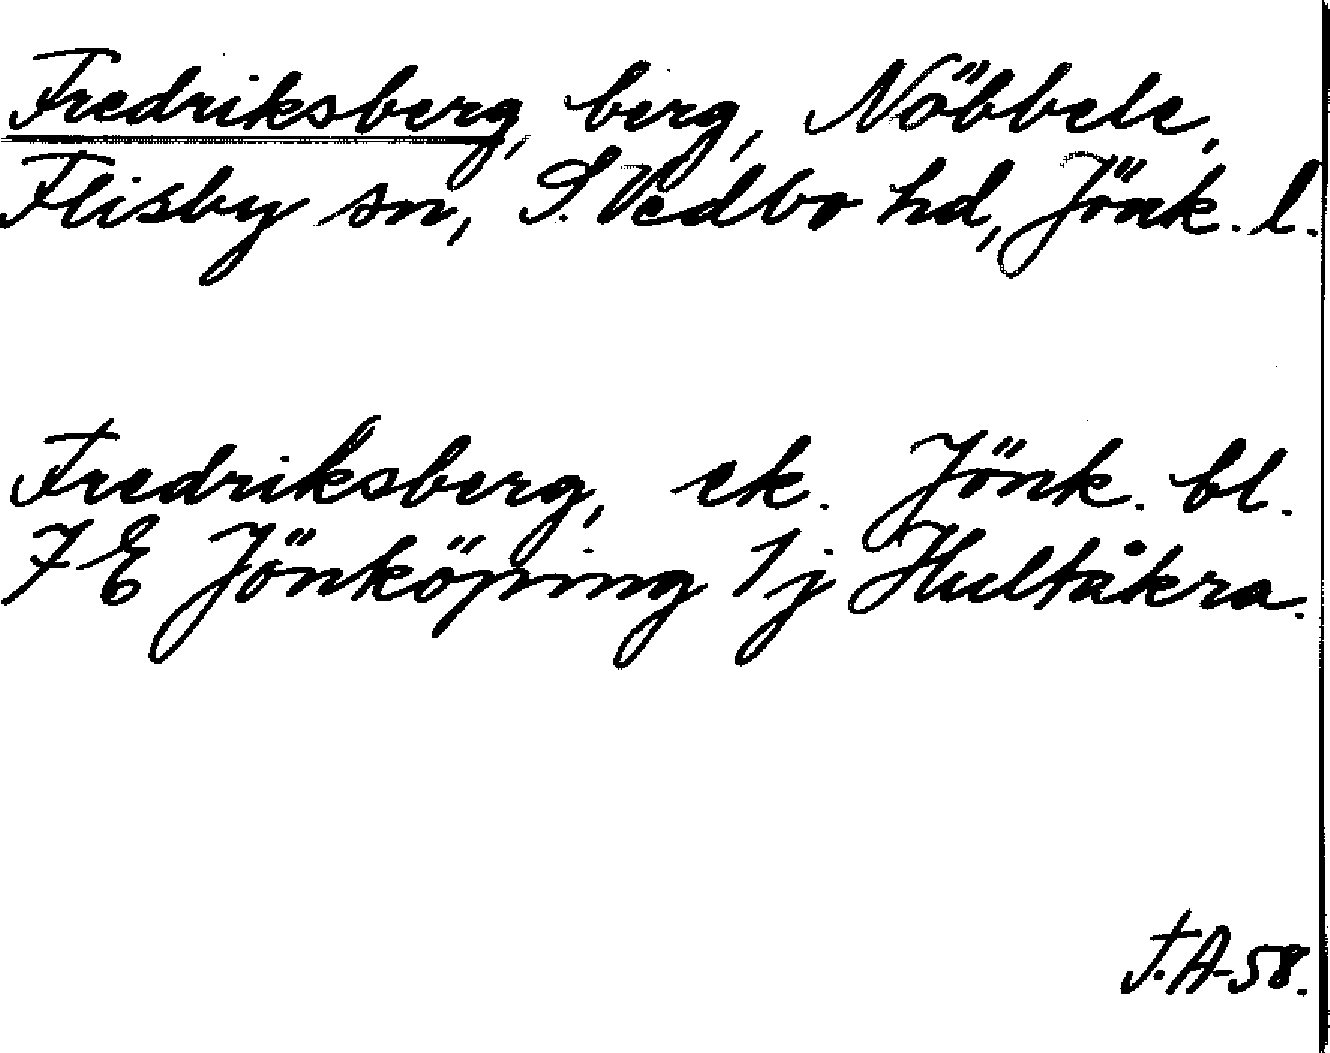 Fredriksberg, berg, Nöbbele,
Flisby sn, S. Vedbo hd, Jönk. l.
Fredriksberg, ek. Jönk. bl.
7 E Jönköping 1 j Hultåkra.
F.A-58.